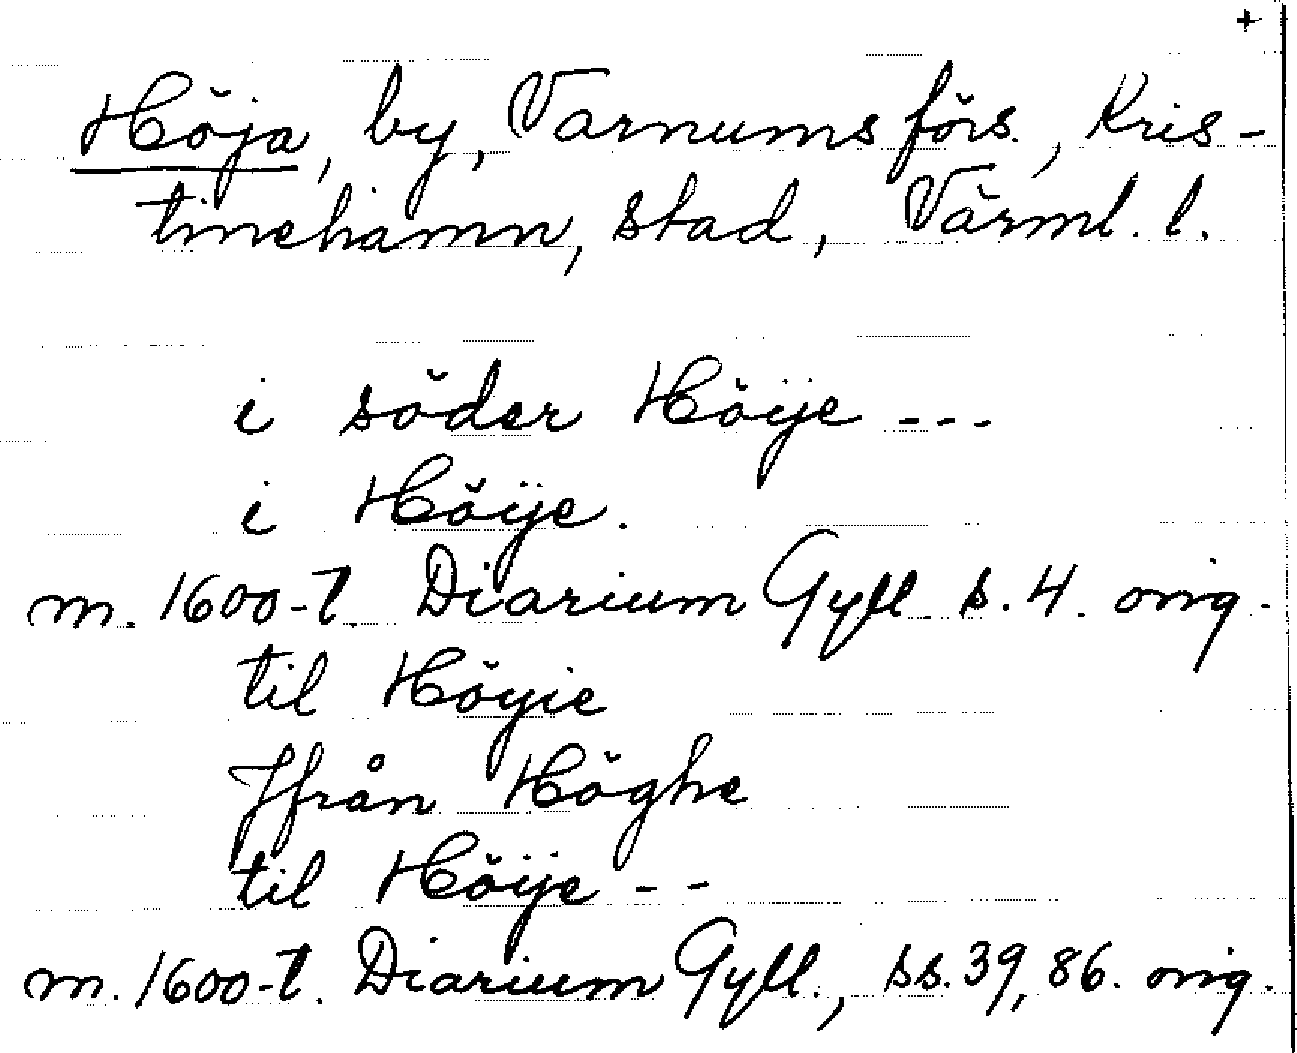 +
Höja, by, Varnums förs., Kris-
tinehamn, stad, Värml. l.
i söder Höije ---
i Höije.
m. 1600-t. Diarium Gyll. s. 4. orig.
til Höyie
Ifrån Höghe
til Höije --
m. 1600-t. Diarium Gyll., ss. 39, 86. orig.